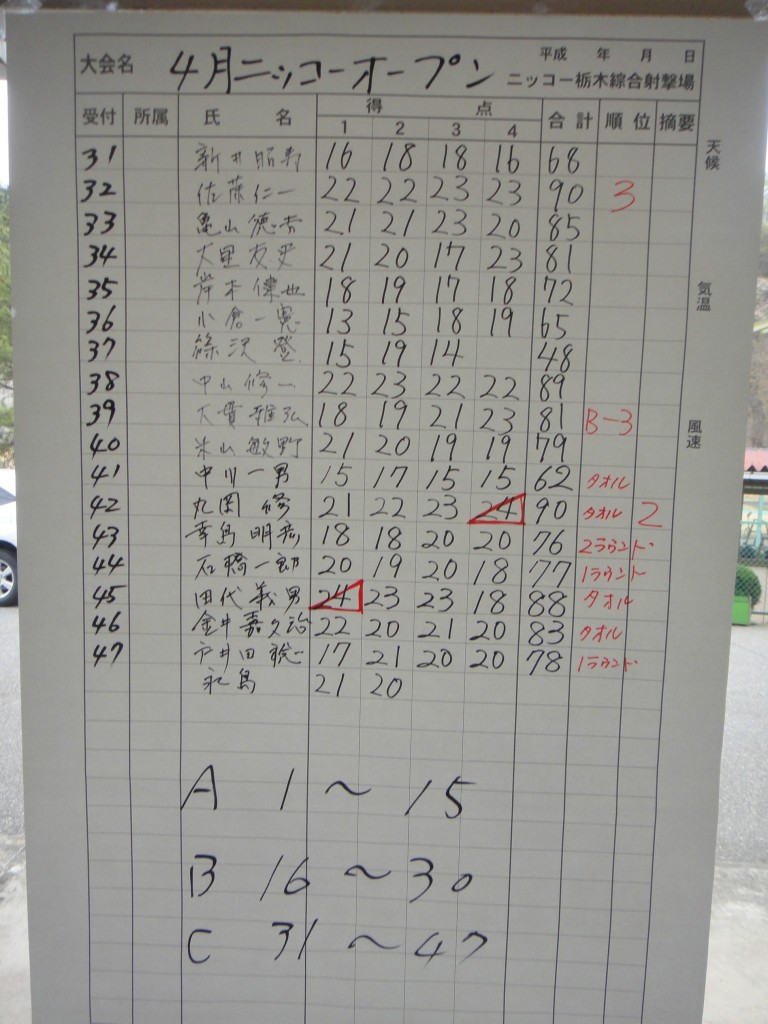 大会名 4月ニッコーオープン 平成 年 月 日
ニッコー栃木綜合射撃場
受付 所属 氏名 得点 合計 順位 摘要
1 2 3 4
天候
気温
風速
31 新井昭寿 16 18 18 16 68
32 佐藤仁一 22 22 23 23 90 3
33 亀山徳 21 21 23 20 85
34 大里友史 21 20 17 23 81
35 岸本偉也 18 19 17 18 72
36 小倉一寛 13 15 18 19 65
37 篠沢登 15 19 14 48
38 中山修一 22 23 22 22 89
39 大貫雅弘 18 19 21 23 81 B-3
40 米山敏野 21 20 19 19 79
41 中川一男 15 17 15 15 62 タオル
42 丸岡修 21 22 23 24 90 タオル 2
43 幸島明彦 18 18 20 20 76 2ラウンド
44 石橋一勅 20 19 20 18 77 1ラウンド
45 田代義男 24 23 23 18 88 タオル
46 金井嘉久治 22 20 21 20 83 タオル
47 戸井田聡 17 21 20 20 78 1ラウンド
永島 21 20
A 1〜15
B 16〜30
C 31〜47